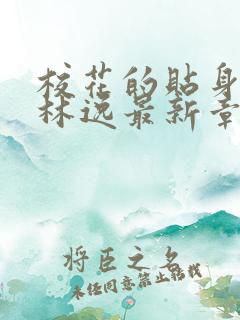 校花的贴身
林逸最新章
将臣之名
未经同意禁止转载